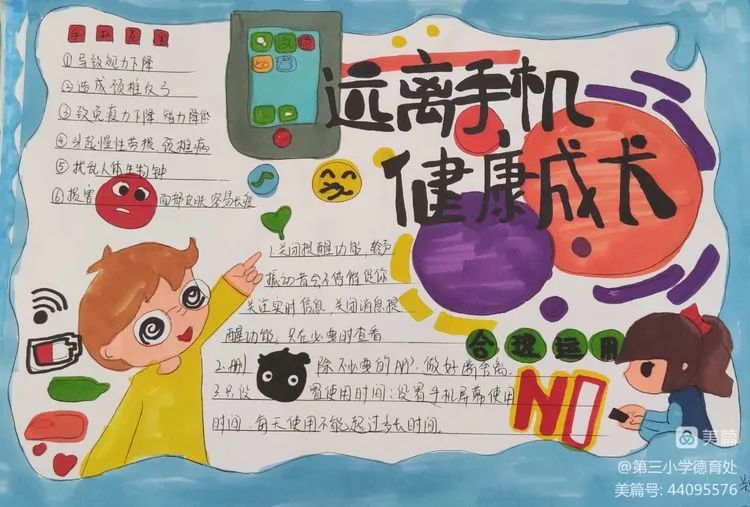 远离手机
健康成长
手机危害
①导致视力下降
②造成颈椎反弓
③致免疫力下降 智力降低
④引起慢性劳损 颈椎病
⑤扰乱人体生物钟
⑥损害 面部皮肤 容易长痘
1.关闭提醒功能,
振动音会不停催促你
关注实时信息,关闭消息提
醒功能,只在必要时查看
2.删 除不必要的APP:做好断舍离
3.只设 置使用时间:设置手机屏幕使用
时间,每天使用不能超过多长时间。
合理运用
NO
美篇
@第三小学德育处
美篇号: 44095576